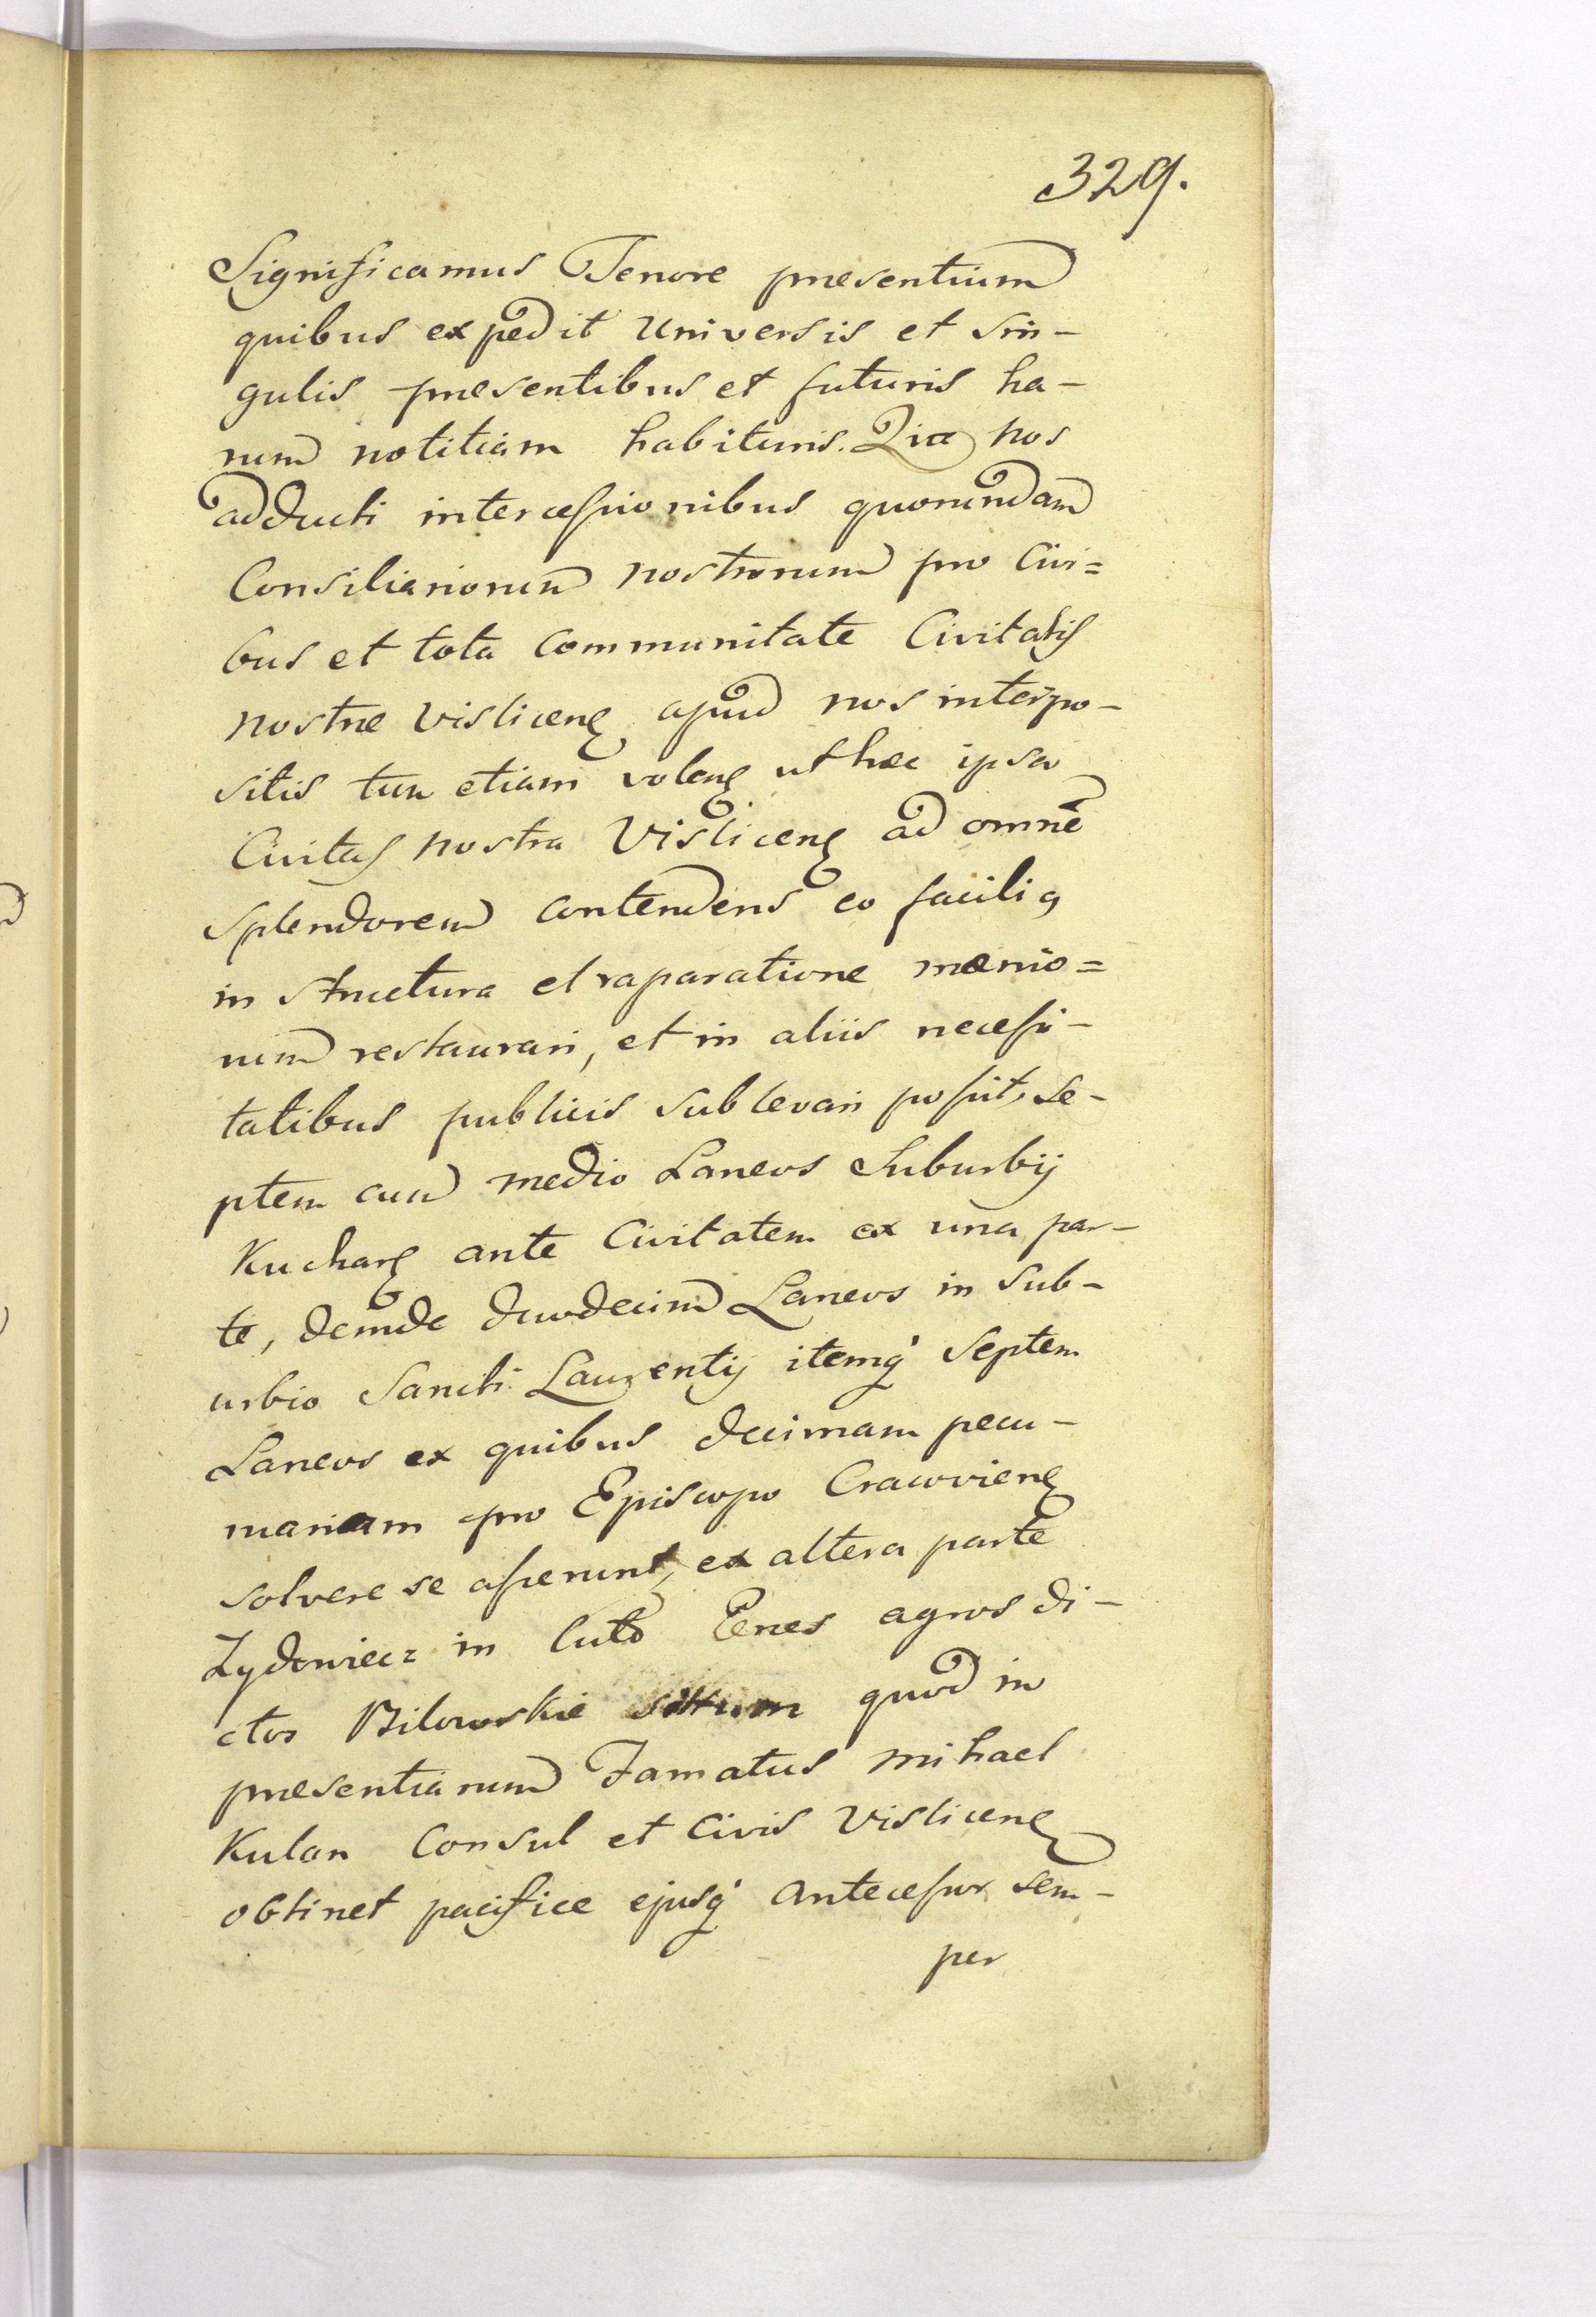 329.
Significamus Tenore presentium
quibus expedit Universis et sin-
gulis presentibus et futuris ha-
rum notitiam habituris. Qia nos
adducti intercessionibus quorundam
Consiliariorum nostrorum pro Civi=
bus et tota Communitate Civitatis
nostre Visliceng apud nos interpo-
sitis tum etiam voleng ut hec ipsa
Civitas nostra Visliceng ad omnē
splendorem contendens eo facilig
in structura et raparatione mœnio=
rum restaurari, et in aliis necessi-
tatibus publicis sublevari possit, se-
ptem cum medio Laneos Suburbij
Kucharg ante Civitatem ex una par-
te, deinde duodecim Laneos in Sub-
urbio Sancti Laurentij itemq' Septem
Laneos ex quibus decimam pecu-
niariam pro Episcopo Cracovieng
solvere se asserunt, ex altera parte
Zydowiec in luto Penes agros di-
ctos Bilowskie situm quod in
presentiarum Famatus Mihael
Kulan Consul et Civis Visliceng
obtinet pacifice ejusq' antecessor sem-
per